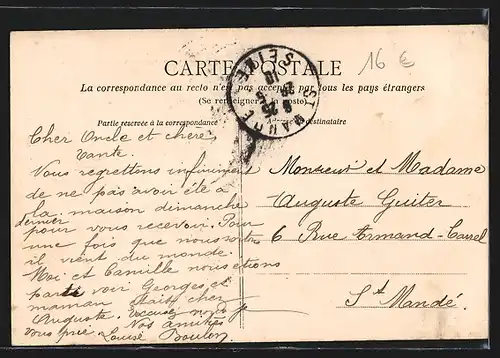 CARTE POSTALE
La correspondance au recto n'est pas acceptée par tous les pays étrangers
(Se renseigner à la poste)
Partie reservée à la correspondance
Adresse du destinataire
16 €
ST MAUR
SEINE
Cher Oncle et chère
Tante.
Vous regrettons infiniment
de ne pas avoir été à
la maison dimanche
dernier
pour vous recevoir. Pour
une fois que nous
il vient du monde.
Moi et Camille nous étions
parti voir Georges et
maman était chez
Auguste. Excusez nous je
vous prie. Nos amitiés
Louise Boulen
Monsieur et Madame
Auguste Guiter
6 Rue Armand-Carrel
St Mandé.